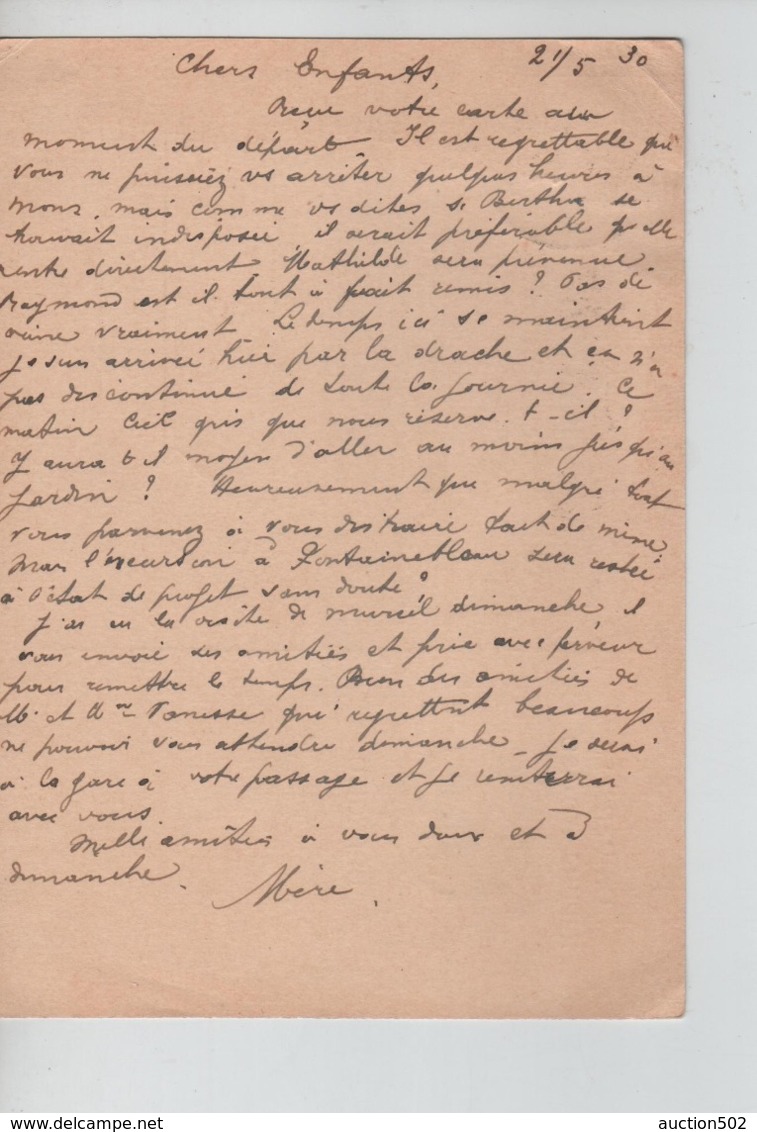 21/5 30
Chers Enfants,
Reçu votre carte au
moment du départ. Il est regrettable que
vous ne puissiez vs arrêter quelques heures à
Mons, mais comme vs dites si Bertha se
trouvait indisposée il serait préférable qu'elle
rentre directement Mathilde sera prévenue
Raymond est il tout à fait remis? Pas de
veine vraiment. Le temps ici se maintient
je suis arrivée hier par la drache et ça n'a
pas discontinué de toute la journée. Ce
matin Ciel gris que nous réserve-t-il?
Y aura t il moyen d'aller au moins jusqu'au
jardin? Heureusement que malgré tout
vous parvenez à vous distraire tout de même.
Mais l'excursion à Fontainebleau sera restée
à l'état de projet sans doute?
J'ai eu la visite de Marcel dimanche il
vous envoie ses amitiés et prie avec ferveur
pour remettre le temps. Bien des amitiés de
Mr et Mme Vanesse qui regrettent beaucoup
ne pouvoir vous attendre dimanche - je serai
à la gare à votre passage et je rentrerai
avec vous.
Mille amitiés à vous deux et à
dimanche. Mère.
auction502